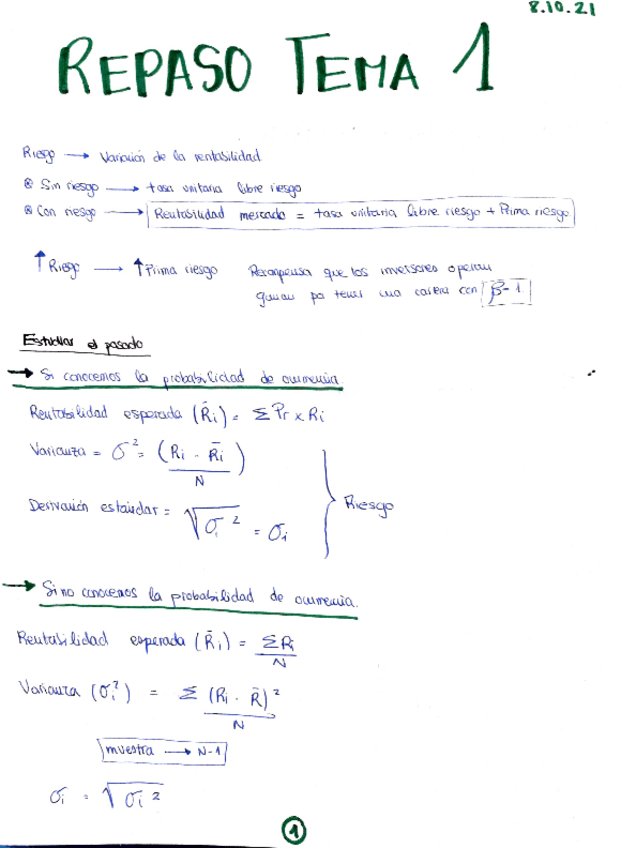 8.10.21
REPASO TEMA 1
Riesgo → Variación de la rentabilidad
⊗ Sin riesgo → tasa unitaria libre riesgo
⊗ Con riesgo → Rentabilidad mercado = tasa unitaria libre riesgo + Prima riesgo
↑ Riesgo → ↑ Prima riesgo Recompensa que los inversores esperan
ganar por tener una cartera con β=1
Estudiar el pasado
→ Si conocemos la probabilidad de ocurrencia
Rentabilidad esperada (R̄i) = Σ Pr x Ri
Varianza = σ² = (Ri - R̄i)
N
Derivación estándar = √σi² = σi
Riesgo
→ Si no conocemos la probabilidad de ocurrencia.
Rentabilidad esperada (R̄i) = ΣRi
N
Varianza (σi²) = Σ (Ri - R̄)²
N
muestra → N-1
σi = √σi²
1